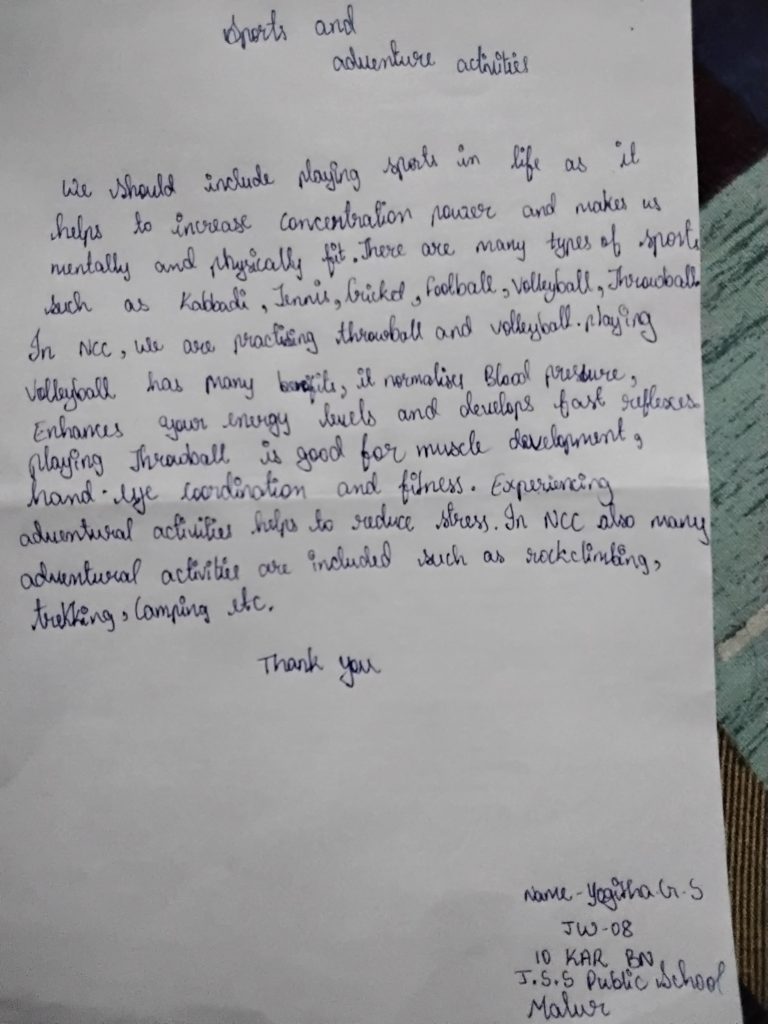 Sports and
adventure activities
We should include playing sports in life as it
helps to increase concentration power and makes us
mentally and physically fit. There are many types of sports
such as Kabbadi, Tennis, Cricket, football, Volleyball, Throwball.
In NCC, we are practising throwball and volleyball. playing
Volleyball has many benefits, it normalises Blood pressure,
Enhances your energy levels and develops fast reflexes.
playing Throwball is good for muscle development,
hand-eye coordination and fitness. Experiencing
adventural activities helps to reduce stress. In NCC also many
adventural activities are included such as rockclimbing,
trekking, Camping etc.
Thank you
Name - Yogitha.G.S
JW-08
10 KAR BN
J.S.S Public School
Malur